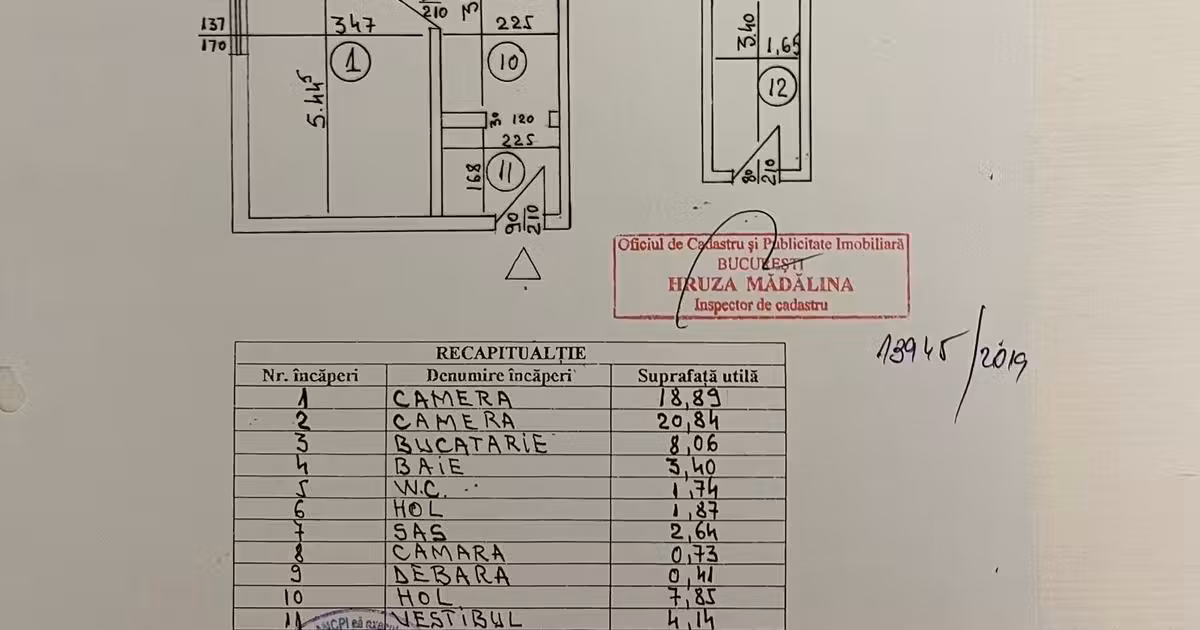 210
137
170
347
225
1
10
5.44⁵
30 120
225
168
11
90
210
3.40
1,65
12
80
210
Oficiul de Cadastru și Publicitate Imobiliară
BUCUREȘTI
HRUZA MĂDĂLINA
Inspector de cadastru
13945/2019
RECAPITUALȚIE
Nr. încăperi Denumire încăperi Suprafață utilă
1 CAMERA 18,89
2 CAMERA 20,84
3 BUCATARIE 8,06
4 BAIE 3,40
5 W.C. 1,74
6 HOL 1,87
7 SAS 2,64
8 CAMARA 0,73
9 DEBARA 0,41
10 HOL 7,85
11 VESTIBUL 4,14